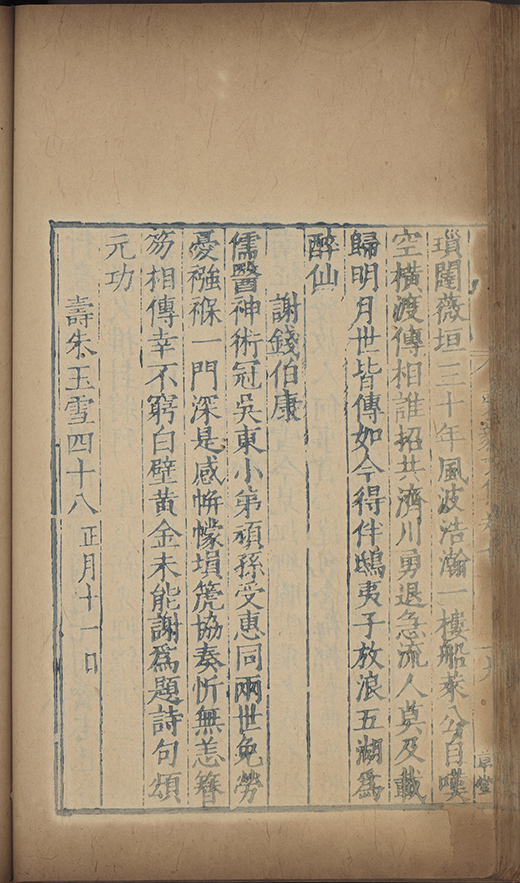 瑣闈薇垣三十年風波浩瀚一樓船萊公自嘆
空橫渡傳相誰招共濟川勇退急流人莫及載
歸明月世皆傳如今得伴鴟夷子放浪五湖爲
醉仙
謝錢伯康
儒醫神術冠吳東小弟頑孫受惠同兩世免勞
憂襁褓一門深是感帡幪塤箎協奏忻無恙簪
笏相傳幸不窮白璧黃金未能謝爲題詩句頌
元功
壽朱玉雪四十八正月十一日
草堂